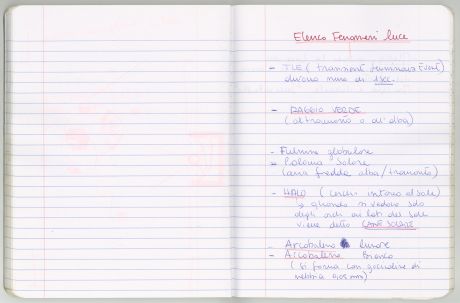 Elenco Fenomeni luce
- TLE (transient luminous Event)
durano meno di 1 sec.
- RAGGIO VERDE
(al tramonto o all'alba)
- Fulmine globulare
- Colonna Solare
(aria fredda alba/tramonto)
- HALO (cerchi intorno al sole)
quando si vedono solo
degli archi ai lati del sole
viene detto CANE SOLARE
- Arcobaleno lunare
- Arcobaleno Bianco
(si forma con goccioline di
nebbia